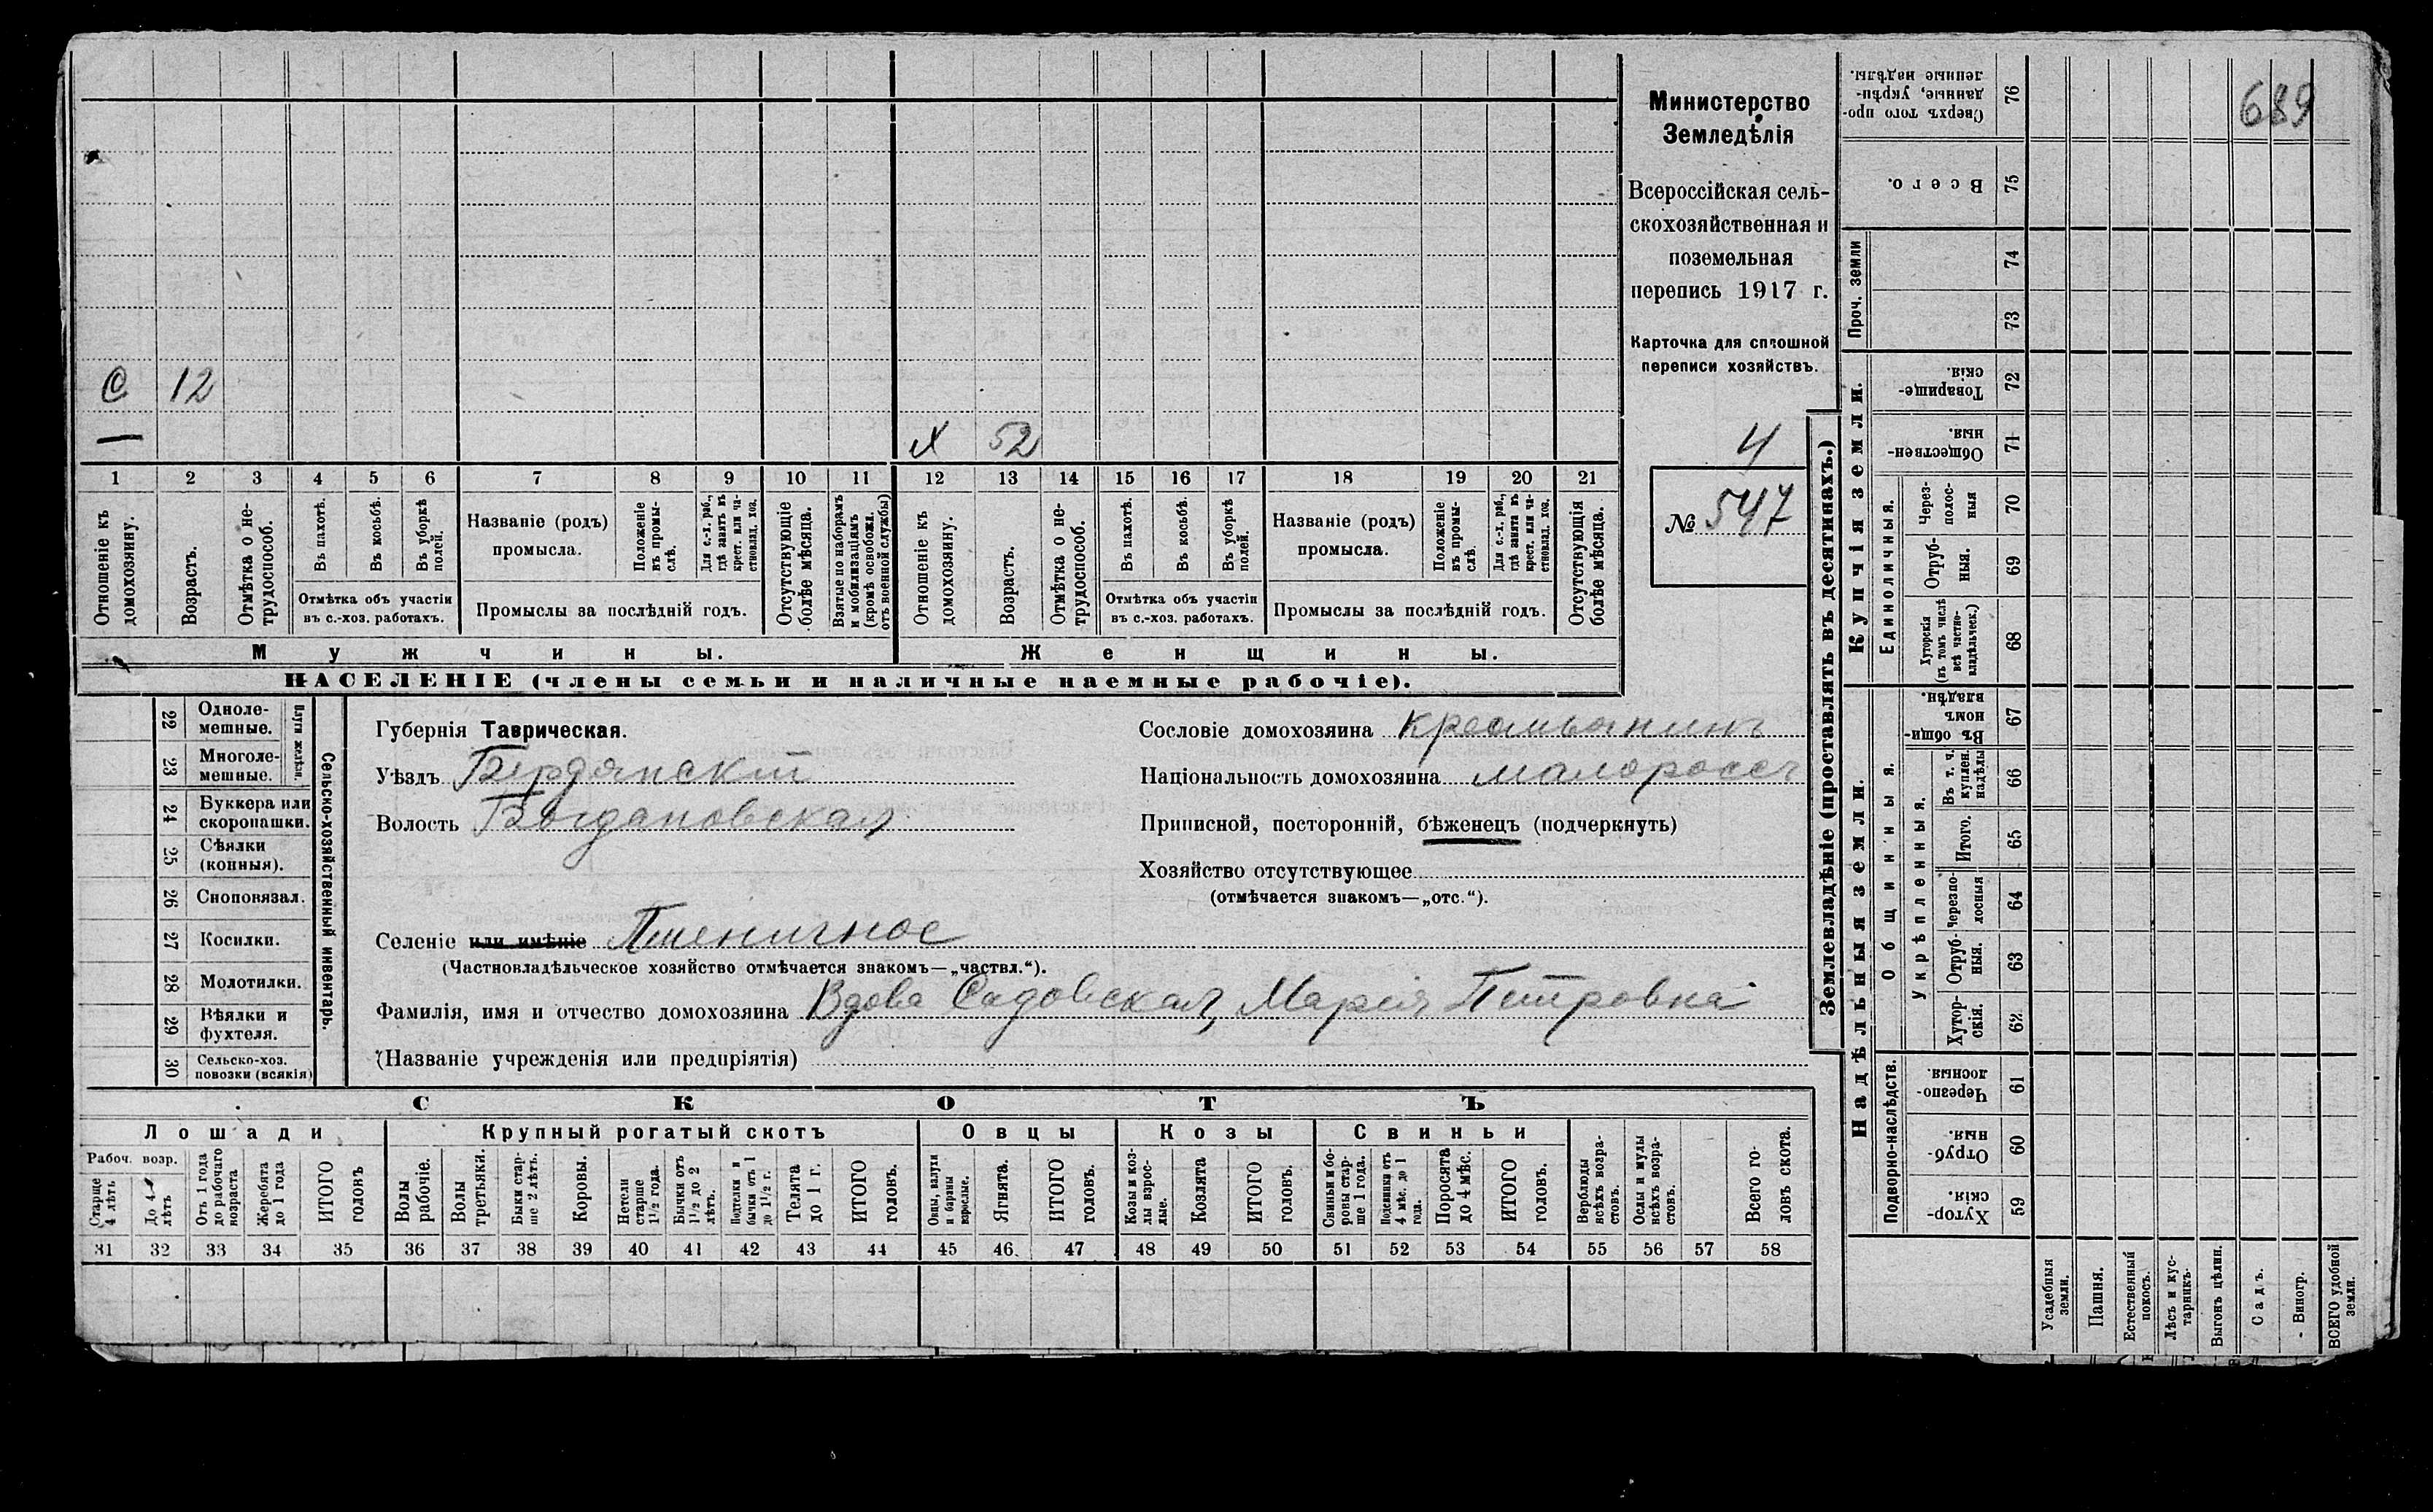 689
Министерство
Земледѣлія
Всероссійская сель-
скохозяйственная и
поземельная
перепись 1917 г.
Карточка для сплошной
переписи хозяйствъ.
4
№ 547
С 12
—
Х 52
1 2 3 4 5 6 7 8 9 10 11 12 13 14 15 16 17 18 19 20 21
Отношеніе къ
домохозяину.
Возрастъ.
Отмѣтка о не-
трудоспособ.
Въ пахотѣ.
Въ косьбѣ.
Въ уборкѣ
полей.
Отмѣтка объ участіи
въ с.-хоз. работахъ.
Названіе (родъ)
промысла.
Положеніе
въ промы-
слѣ.
Для с.-х. раб.,
гдѣ занятъ въ
крест. или ча-
стновлад. хоз.
Промыслы за послѣдній годъ.
Отсутствующіе
болѣе мѣсяца.
Взятые по наборамъ
и мобилизаціямъ
(кромѣ освобожд.
отъ военной службы)
Отношеніе къ
домохозяину.
Возрастъ.
Отмѣтка о не-
трудоспособ.
Въ пахотѣ.
Въ косьбѣ.
Въ уборкѣ
полей.
Отмѣтка объ участіи
въ с.-хоз. работахъ.
Названіе (родъ)
промысла.
Положеніе
въ промы-
слѣ.
Для с.-х. раб.,
гдѣ занята въ
крест. или ча-
стновлад. хоз.
Промыслы за послѣдній годъ.
Отсутствующія
болѣе мѣсяца.
Мужчины.
Женщины.
НАСЕЛЕНІЕ (члены семьи и наличные наемные рабочіе).
22 Одноле-
мешные.
23 Многоле-
мешные.
Плуги желѣзн.
24 Буккера или
скоропашки.
25 Сѣялки
(конныя).
26 Сноповязал.
27 Косилки.
28 Молотилки.
29 Вѣялки и
фухтеля.
30 Сельско-хоз.
повозки (всякія)
Сельско-хозяйственный инвентарь.
Губернія Таврическая.
Уѣздъ Бердянскій
Волость Богдановская
Селеніе или имѣніе Пшеничное
(Частновладѣльческое хозяйство отмѣчается знакомъ—„частвл.“).
Фамилія, имя и отчество домохозяина Вдова Садовская, Марія Петровна
(Названіе учрежденія или предпріятія)
Сословіе домохозяина крестьянинъ
Національность домохозяина малороссъ
Приписной, посторонній, бѣженецъ (подчеркнуть)
Хозяйство отсутствующее
(отмѣчается знакомъ—„отс.“).
СКОТЪ
Лошади
Крупный рогатый скотъ
Овцы
Козы
Свиньи
Рабоч. возр.
Старше
4 лѣтъ
До 4
лѣтъ
Отъ 1 года
до рабочаго
возраста
Жеребята
до 1 года
ИТОГО
головъ
Волы
рабочіе.
Волы
третьяки.
Быки стар-
ше 2 лѣтъ.
Коровы.
Нетели
старше
1½ года.
Бычки отъ
1½ до 2
лѣтъ.
Подтелки и
бычки отъ 1
до 1½ г.
Телята
до 1 г.
ИТОГО
головъ.
Овцы, валухи
и бараны
взрослые.
Ягнята.
ИТОГО
головъ.
Козы и коз-
лы взрос-
лые.
Козлята
ИТОГО
головъ.
Свиньи и бо-
ровы стар-
ше 1 года.
Подсвинки отъ
4 мѣс. до 1
года.
Поросята
до 4 мѣс.
ИТОГО
головъ.
Верблюды
всѣхъ возра-
стовъ.
Ослы и мулы
всѣхъ возра-
стовъ.
Всего го-
ловъ скота.
31 32 33 34 35 36 37 38 39 40 41 42 43 44 45 46 47 48 49 50 51 52 53 54 55 56 57 58
Землевладѣніе (проставлять въ десятинахъ.)
Надѣльныя земли.
Купчія земли.
Проч. земли
Подворно-наслѣдств.
Общинныя.
Укрѣпленныя.
Единоличныя.
Сверхъ того про-
данные, укрѣп-
ленные надѣлы.
76
Всего.
75
74
73
Товарище-
скія.
72
Обществен-
ныя.
71
Через-
полос-
ныя
70
Отруб-
ныя.
69
Хуторскія
(въ томъ числѣ
всѣ частно-
владѣльческ.)
68
Въ общин-
номъ
владѣн.
67
Въ т. ч.
куплен.
надѣлы
66
Итого.
65
Черезпо-
лосныя
64
Отруб-
ныя.
63
Хутор-
скія.
62
Черезпо-
лосныя.
61
Отруб-
ныя.
60
Хутор-
скія.
59
Усадебныя
земли.
Пашня.
Естественный
покосъ.
Лѣсъ и кус-
тарникъ.
Выгонъ цѣлин.
Садъ.
Виногр.
ВСЕГО удобной
земли.